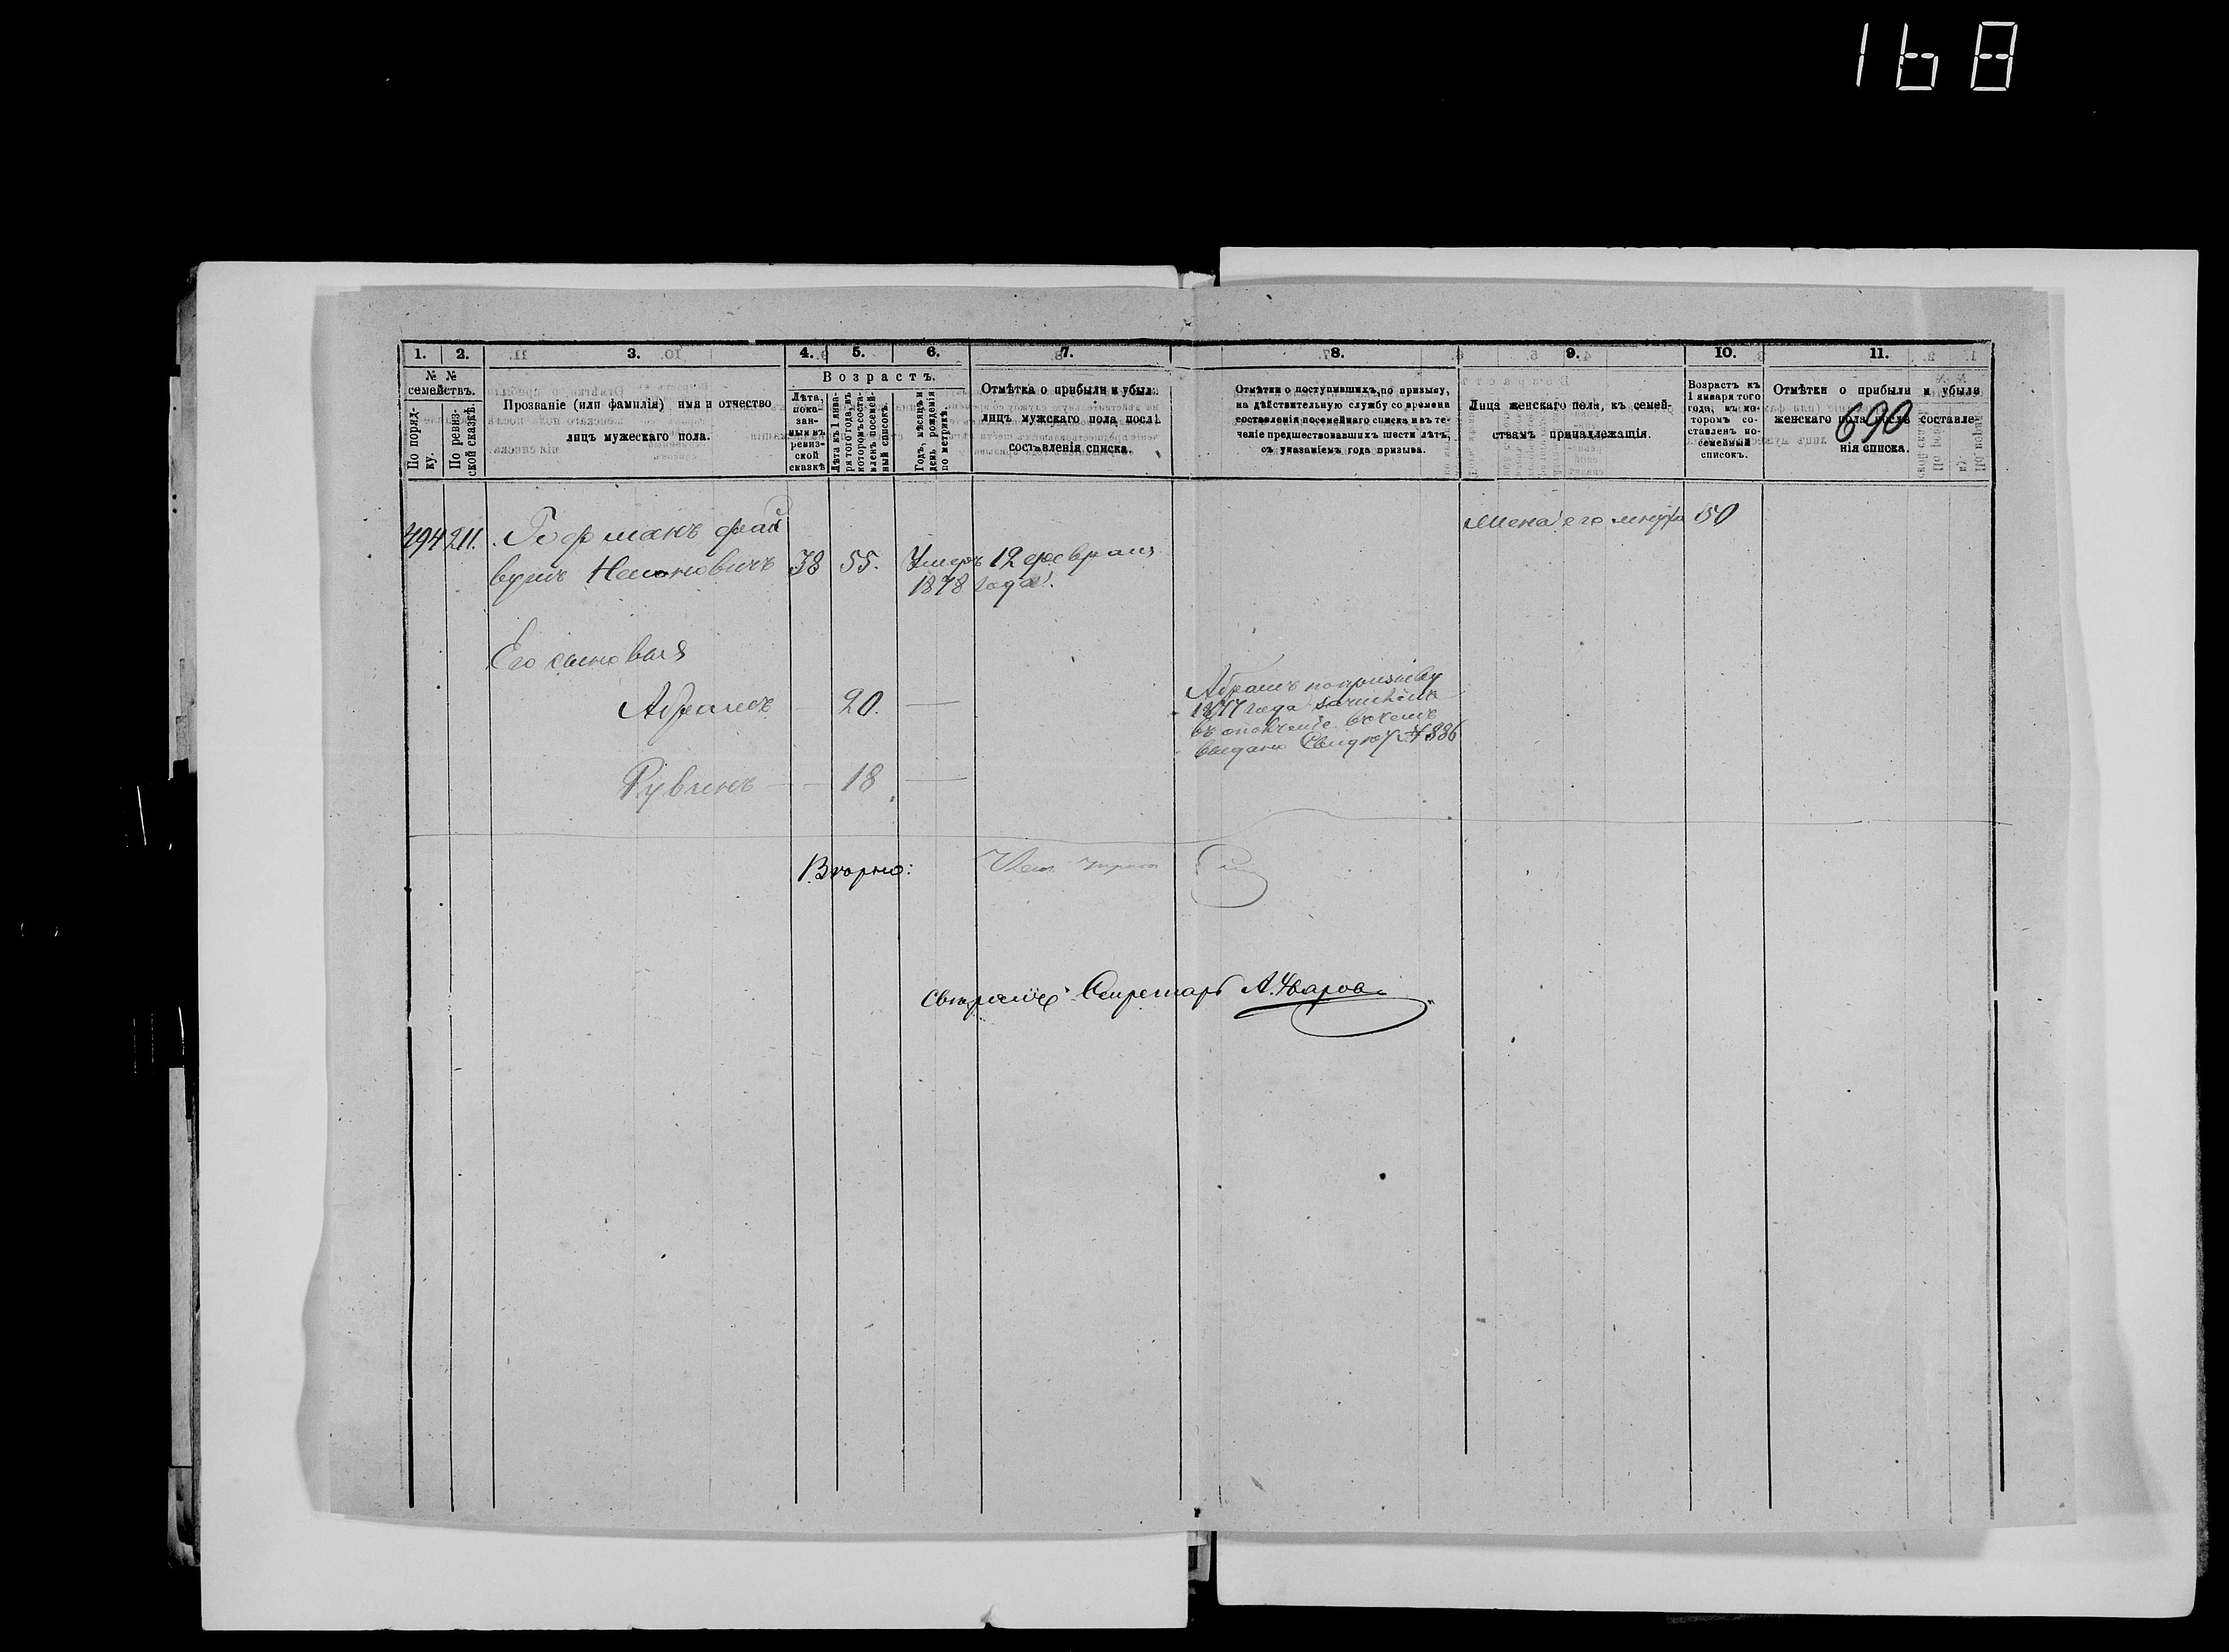 168
1. 2. 3. 4. 5. 6. 7. 8. 9. 10. 11.
№ №
семействъ.
По поряд-
ку.
По ревиз-
ской сказкѣ.
Прозваніе (или фамилія) имя и отчество
лицъ мужескаго пола.
Возрастъ.
Лѣта,
пока-
зан-
ныя въ
ревиз-
ской
сказкѣ
Лѣта къ 1 янва-
ря того года, въ
которомъ соста-
вленъ посемей-
ный списокъ.
Годъ, мѣсяцъ и
день рожденія
по метрикѣ.
Отмѣтка о прибыли и убыли
лицъ мужскаго пола послѣ
составленія списка.
Отмѣтки о поступившихъ, по призыву,
на дѣйствительную службу со времени
составленія посемейнаго списка и въ те-
ченіе предшествовавшихъ шести лѣтъ,
съ указаніемъ года призыва.
Лица женскаго пола, къ семей-
ствамъ принадлежащія.
Возрастъ къ
1 января того
года, въ ко-
торомъ со-
ставленъ по-
семейный
списокъ.
Отмѣтки о прибыли и убыли
женскаго пола послѣ составле-
нія списка.
690
494 211. Гофманъ Фай
вушъ 38 55. Умеръ 12 февраля
1878 года.
Жена его 50
Его сыновья
Абрамъ 20. —
Абрамъ по призыву
1877 года зачисленъ
въ ополченіе въ чемъ
выдано Свид № 886
Рувинъ — 18 —
Вѣрно:
Секретарь А.